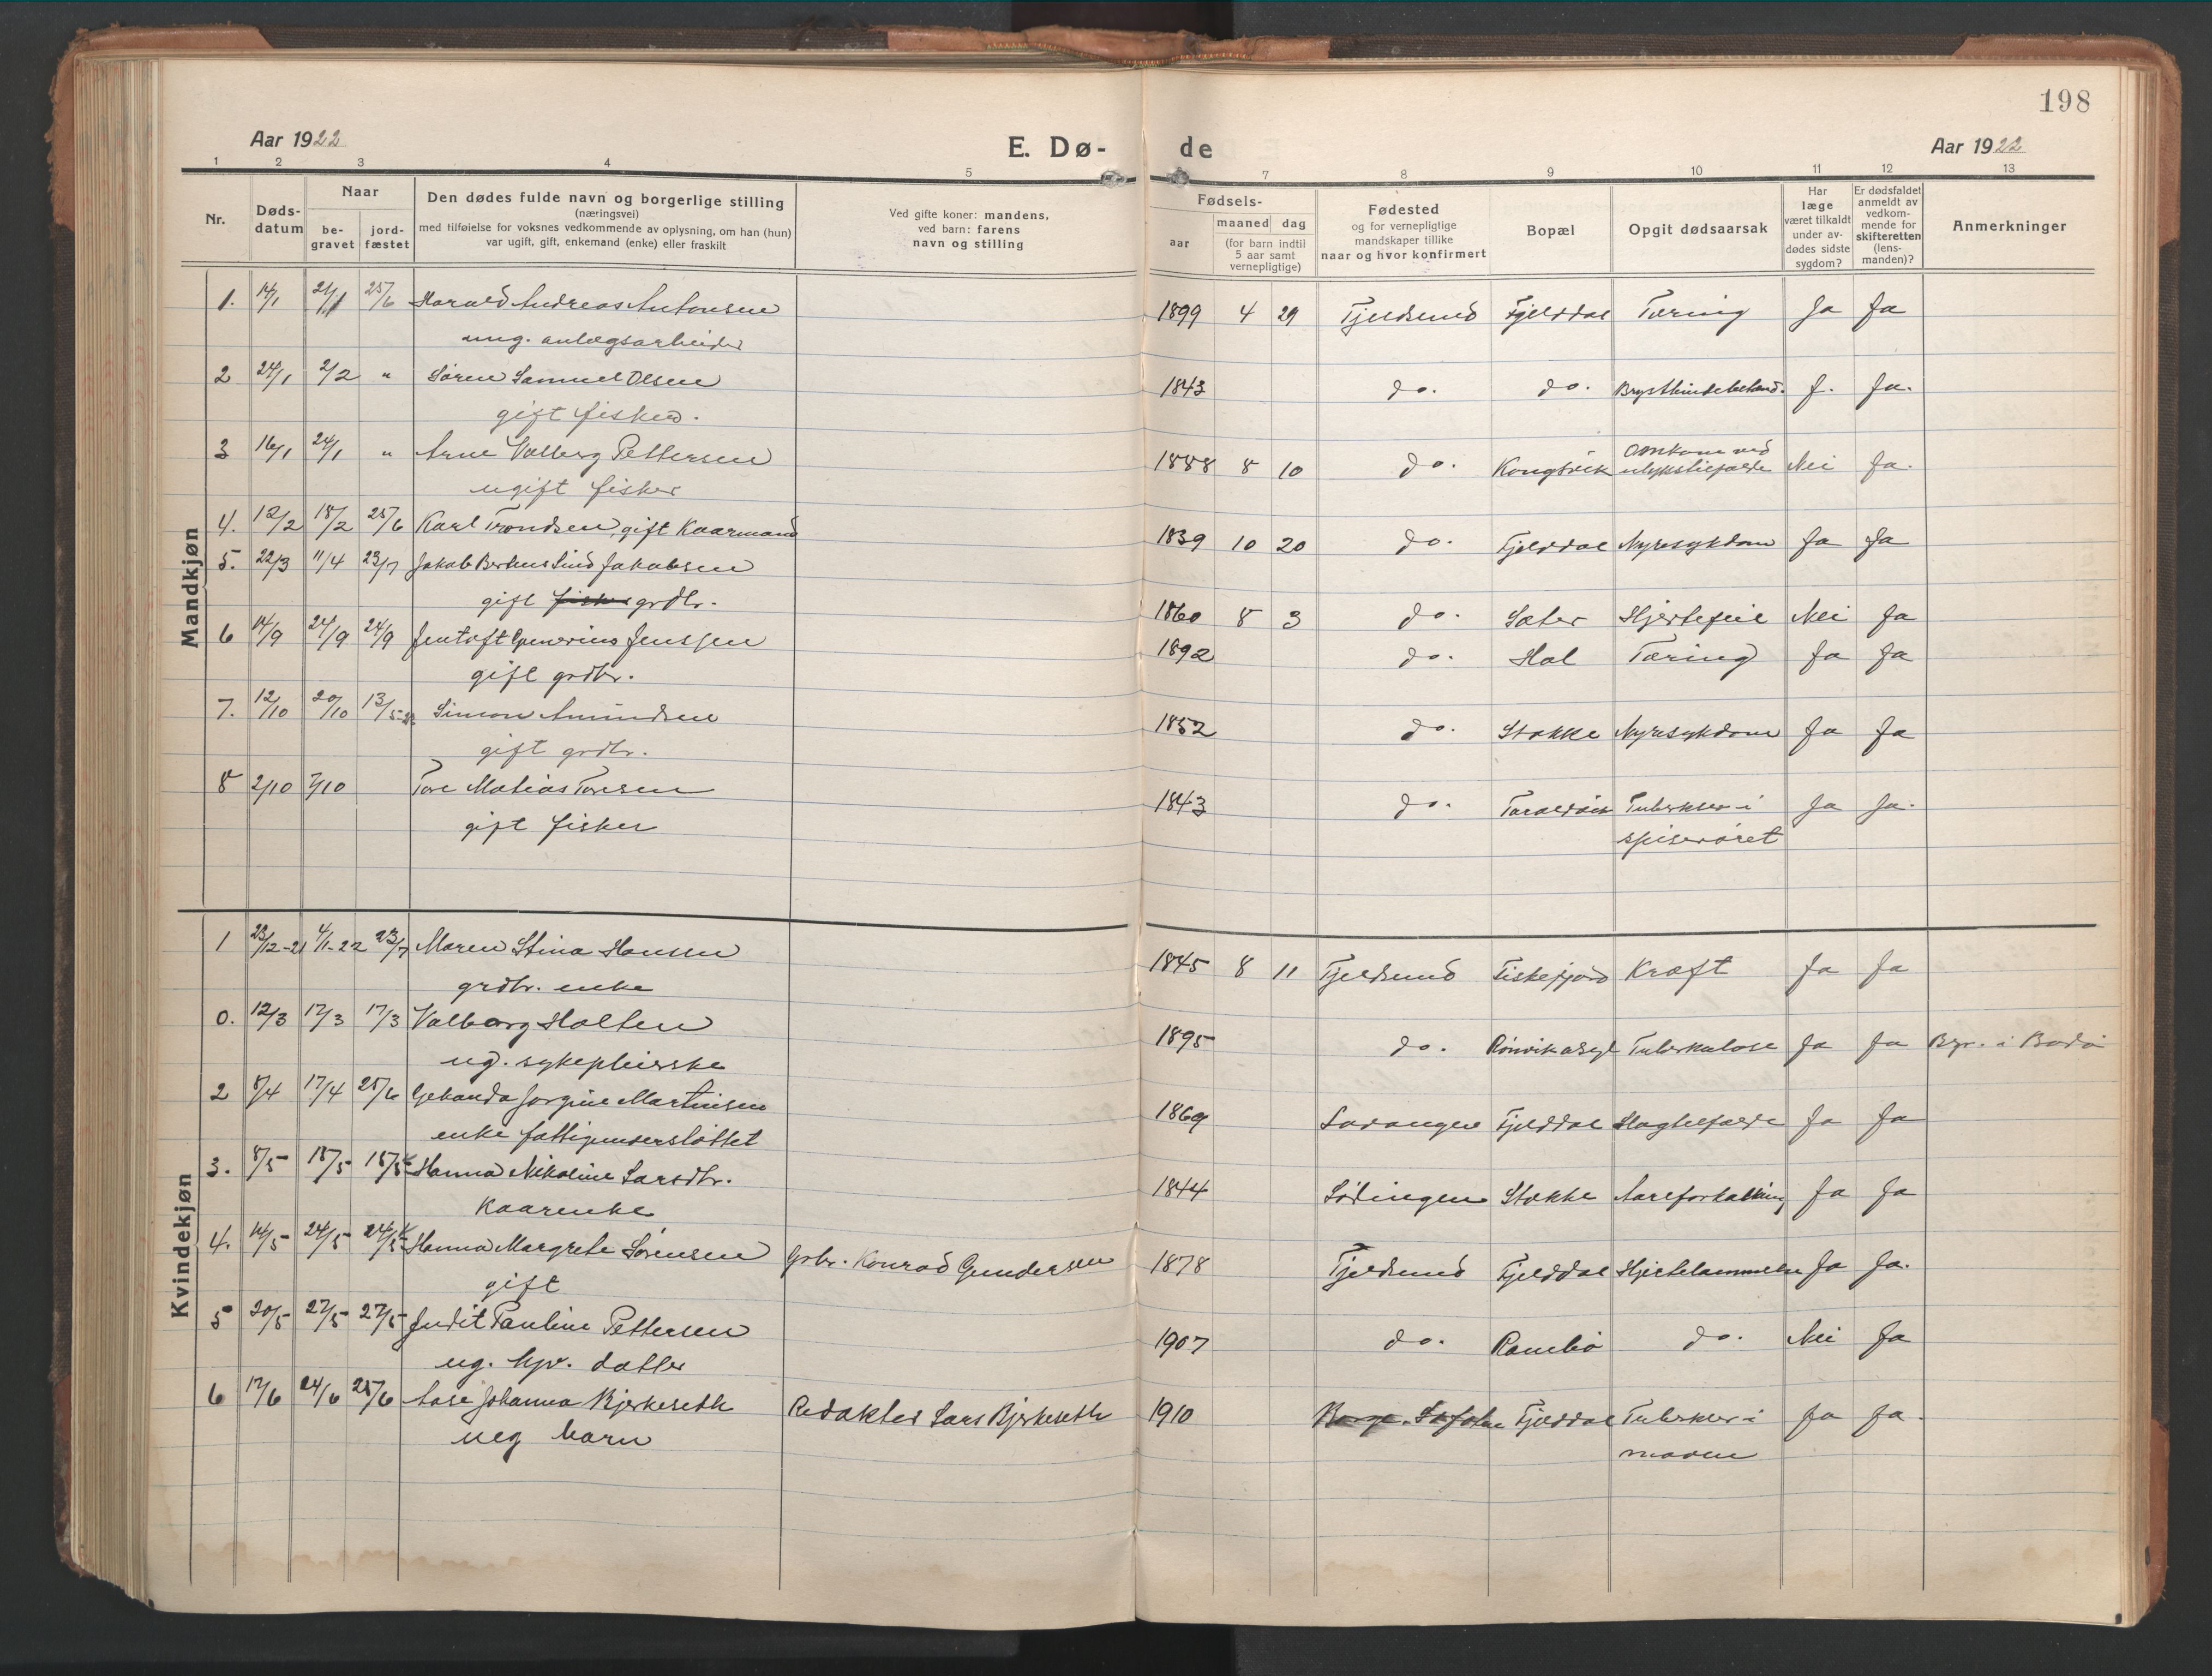 198
Aar 1922
E. Dø-
de
Aar 1922
1 2 3 4 5
7 8 9 10 11 12 13
Nr.
Døds-
datum
Naar
be-
gravet
jord-
fæstet
Den dødes fulde navn og borgerlige stilling
(næringsvei)
med tilføielse for voksnes vedkommende av oplysning, om han (hun)
var ugift, gift, enkemand (enke) eller fraskilt
Ved gifte koner: mandens,
ved barn: farens
navn og stilling
Fødsels-
aar
maaned dag
(for barn indtil
5 aar samt
vernepligtige)
Fødested
og for vernepligtige
mandskaper tillike
naar og hvor konfirmert
Bopæl
Opgit dødsaarsak
Har
læge
været tilkaldt
under av-
dødes sidste
sygdom?
Er dødsfaldet
anmeldt av
vedkom-
mende for
skifteretten
(lens-
manden)?
Anmerkninger
Mandkjøn
1. 14/1 21/1 25/6 Harald Andreas Antonsen 1899 4 29 Tjeldsund Fjelddal Tæring Ja Ja
ung. anlægsarbeider
2 24/1 2/2 " Søren Samuel Olsen 1843 do. do. J. Ja.
gift fisker.
3 16/1 24/1 " Arne Valberg Pettersen 1888 8 10 do. Kongsvik Omkom ved ulykkestilfælde Nei Ja.
ugift fisker
4. 12/2 18/2 25/6 Karl Trondsen, gift Kaarmand 1839 10 20 do. Fjelddal Nyresykdom Ja Ja
5. 22/3 11/4 23/7 Jakob Berhus Lind Jakobsen
gift fisker grdbr. 1860 8 3 do. Sæter Hjertefeil Nei Ja
6 14/9 24/9 24/9 Jentoft Jenssen 1892 do. Hol Tæring Ja Ja
gift grdbr.
7. 12/10 20/10 13/5-23 Simon Amundsen 1852 do. Stokke Nyresykdom Ja Ja
gift grdbr.
8 2/10 7/10 Tore Matias Toresen 1843 do. Taraldvik Tuberkler i Ja Ja.
gift fisker spiserøret
Kvindekjøn
1 23/12-21 4/1-22 23/7 Maren Stina Hansen 1845 8 11 Tjeldsund Fiskefjord Kræft Ja Ja
grdbr. enke
0. 12/3 17/3 17/3 Valborg Holten 1895 do. Rønvik asyl Tuberkulose Ja Ja Bgr. i Bodø
ug. sykepleierske
2 8/4 17/4 25/6 Gehanda Jørgine Martinsen 1869 Salangen Fjelddal Slagtilfælde Ja Ja
enke fattigunderstøttet
3. 8/5 18/5 18/5 Hanna Nikoline Larsdtr. 1844 Lødingen Stokke Aareforkalkning Ja Ja
Kaarenke
4. 14/5 24/5 24/5 Hanna Margrete Sørensen Grbr. Konrad Gundersen 1878 Tjeldsund Fjelddal Hjertelammelse Ja Ja.
gift
5 20/5 27/5 27/5 Judit Pauline Pettersen 1907 do. Rambø do. Nei Ja
ug. datter
6 17/6 24/6 25/6 Aase Johanna Bjerkeseth Redaktør Lars Bjerkeseth 1910 Borge. Lofoten Fjelddal Tuberkler i Ja Ja.
ug barn maven